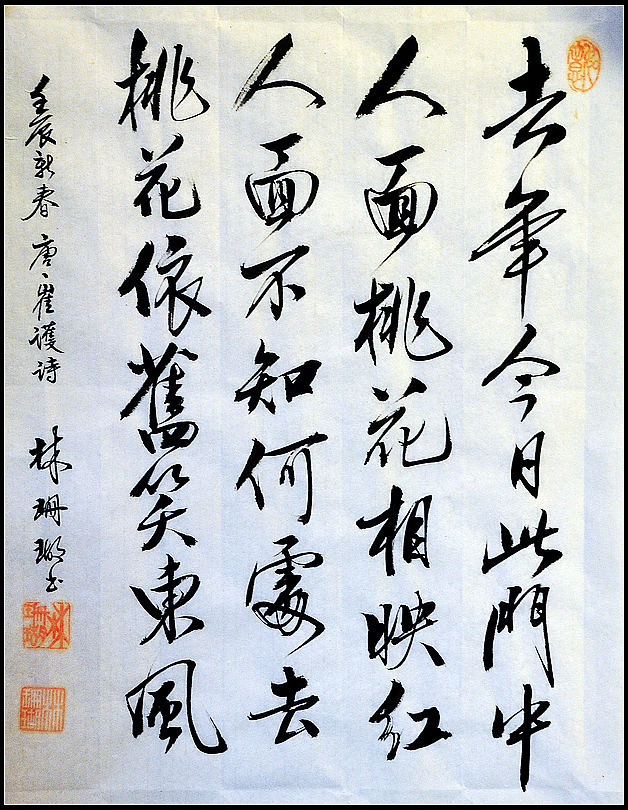 去年今日此門中
人面桃花相映紅
人面不知何處去
桃花依舊笑東風
壬辰新春 唐、崔護詩 林珊瑚书